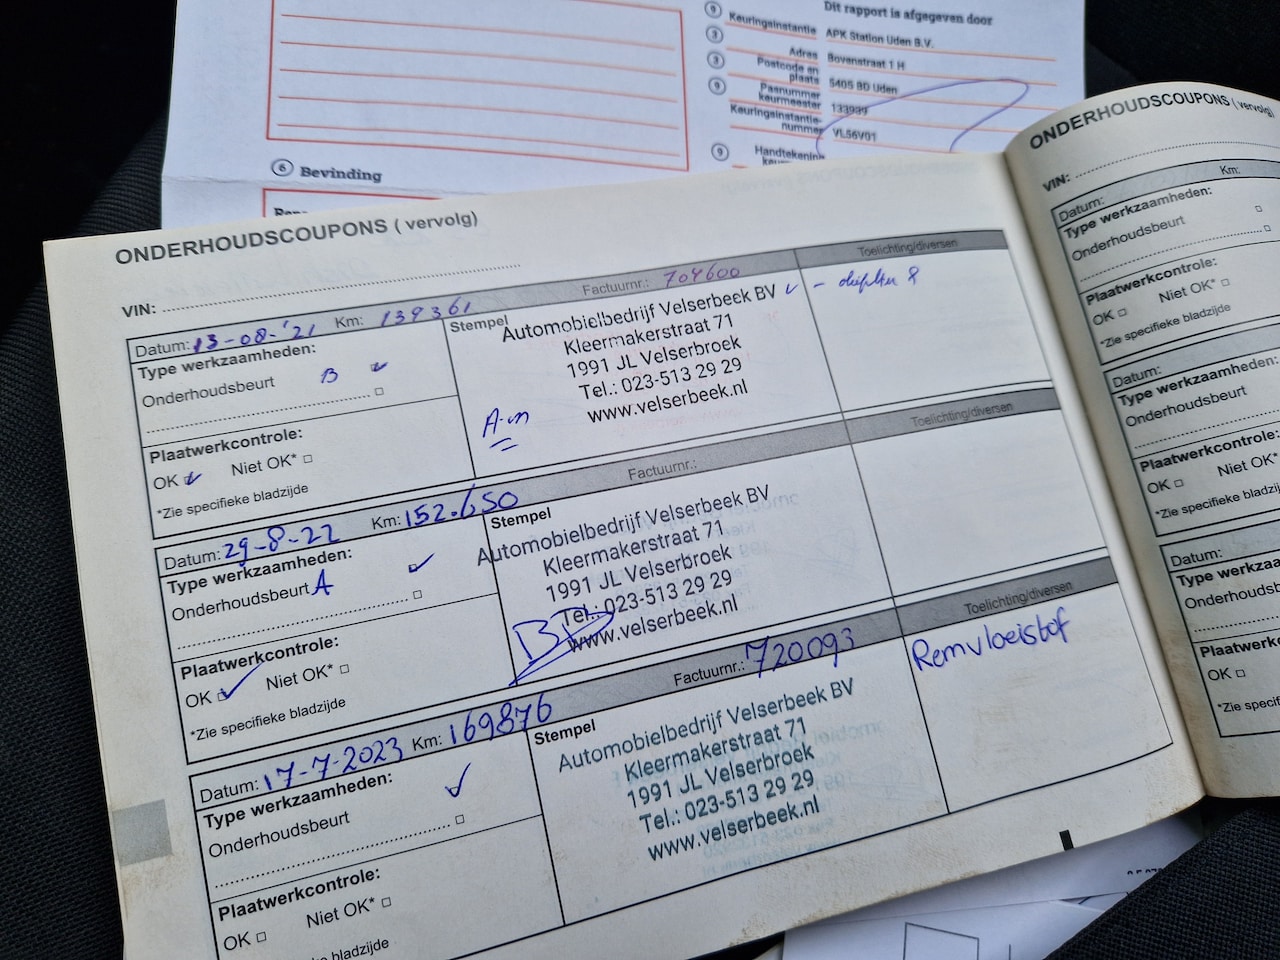 Dit rapport is afgegeven door
9 Keuringsinstantie APK Station Uden B.V.
9 Adres Bovenstraat 1 H
9 Postcode en plaats 5405 BD Uden
9 Pasnummer keurmeester 133939
Keuringsinstantie-nummer VL56V01
9 Handtekening
6 Bevinding
ONDERHOUDSCOUPONS ( vervolg)
VIN:
Datum: 13-08-'21 Km: 139361 Factuurnr.: 704600 Toelichting/diversen
Type werkzaamheden:
Onderhoudsbeurt B
Plaatwerkcontrole:
OK Niet OK*
*Zie specifieke bladzijde
Stempel
Automobielbedrijf Velserbeek BV
Kleermakerstraat 71
1991 JL Velserbroek
Tel.: 023-513 29 29
www.velserbeek.nl
Datum: 29-8-22 Km: 152.650 Factuurnr.: Toelichting/diversen
Type werkzaamheden:
Onderhoudsbeurt A
Plaatwerkcontrole:
OK Niet OK*
*Zie specifieke bladzijde
Stempel
Automobielbedrijf Velserbeek BV
Kleermakerstraat 71
1991 JL Velserbroek
Tel.: 023-513 29 29
www.velserbeek.nl
Datum: 17-7-2023 Km: 169876 Factuurnr.: 720093 Toelichting/diversen
Type werkzaamheden:
Onderhoudsbeurt
Plaatwerkcontrole:
OK Niet OK*
*Zie specifieke bladzijde
Stempel
Automobielbedrijf Velserbeek BV
Kleermakerstraat 71
1991 JL Velserbroek
Tel.: 023-513 29 29
www.velserbeek.nl
Remvloeistof
ONDERHOUDSCOUPONS ( vervolg)
VIN:
Datum: Km:
Type werkzaamheden:
Onderhoudsbeurt
Plaatwerkcontrole:
OK Niet OK*
*Zie specifieke bladzijde
Datum:
Type werkzaamheden:
Onderhoudsbeurt
Plaatwerkcontrole:
OK Niet OK*
*Zie specifieke
Datum:
Type
Onderhoudsbeurt
Plaatwerkcontrole:
OK